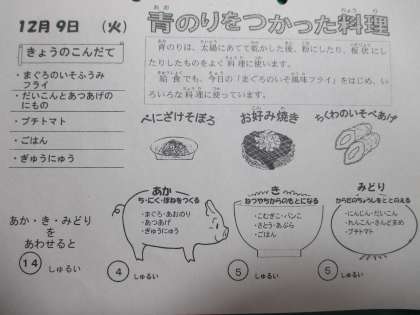 12月9日 (火)
青のりをつかった料理
きょうのこんだて
・まぐろのいそふうみ
フライ
・だいこんとあつあげの
にもの
・プチトマト
・ごはん
・ぎゅうにゅう
青のりは、太陽にあてて乾かした後、粉にしたり、板状に
したりしたものをよく料理に使います。
給食でも、今日の「まぐろのいそ風味フライ」をはじめ、い
ろいろな料理に使っています。
べにざけそぼろ
お好み焼き
ちくわのいそべあげ
あか
ち・にく・ほねをつくる
・まぐろ・あおのり
・あつあげ
・ぎゅうにゅう
き
ねつやちからのもとになる
・こむぎこ・パンこ
・さとう・あぶら
・ごはん
みどり
からだのちょうしをととのえる
・にんじん・だいこん
・れんこん・さんど
・プチトマト
あか・き・みどり
を
あわせると
14 しゅるい
4 しゅるい
5 しゅるい
5 しゅるい